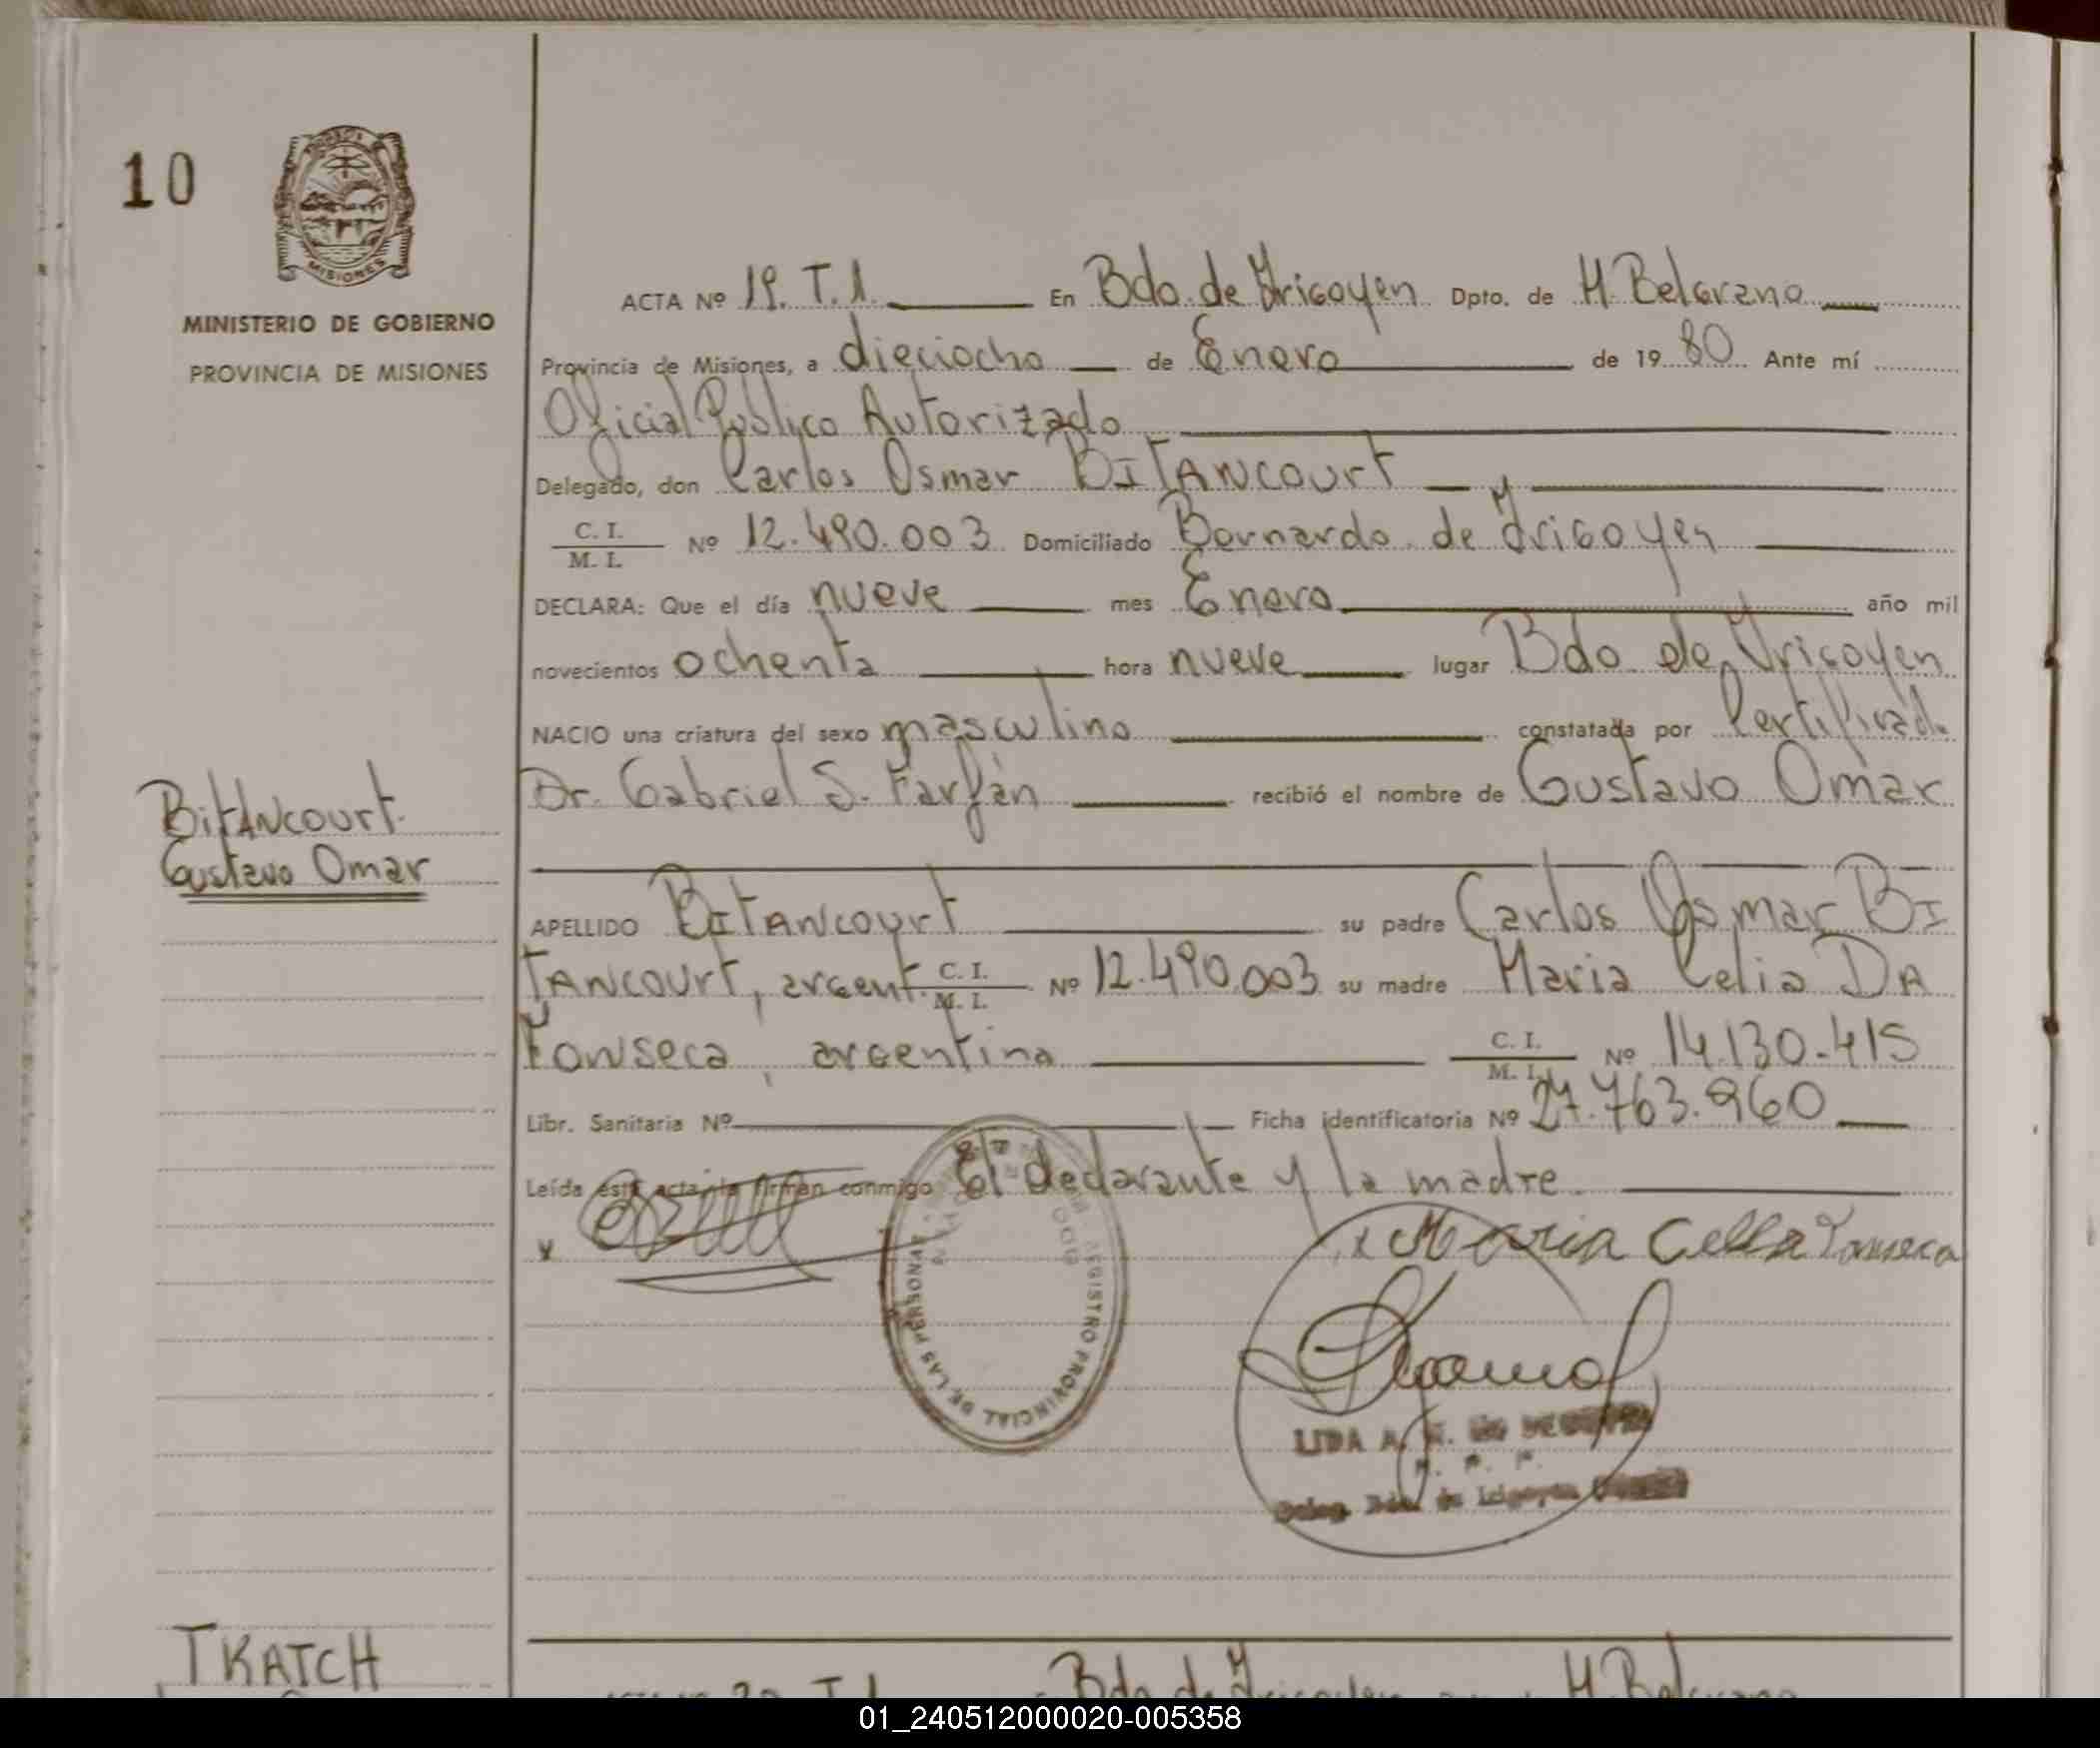 10
MISIONES
MINISTERIO DE GOBIERNO
PROVINCIA DE MISIONES
ACTA Nº 19. T.1. En Bdo. de Yrigoyen Dpto. de M. Belgrano
Provincia de Misiones, a dieciocho de Enero de 1980 Ante mí
Oficial Público Autorizado
Delegado, don Carlos Osmar BITANCOURT
C. I.
M. I. Nº 12.490.003 Domiciliado Bernardo de Yrigoyen
DECLARA: Que el día nueve mes Enero año mil
novecientos ochenta hora nueve lugar Bdo de Yrigoyen
NACIO una criatura del sexo masculino constatada por Certificado
Dr. Gabriel S. Farfán recibió el nombre de Gustavo Omar
BitANcourt.
Gustavo Omar
APELLIDO BITANCOURT su padre Carlos Osmar BI
TANCOURT, argent. C. I. M. I. Nº 12.490.003 su madre Maria Celia DA
FONSECA, argentina C. I. M. I. Nº 14.130.415
Libr. Sanitaria Nº Ficha identificatoria Nº 27.763.960
Leída esta acta la firman conmigo El declarante y la madre.
x Maria Celia Fonseca
REGISTRO PROVINCIAL DE LAS PERSONAS
LIDA A.
TKATCH
Bdo de Yrigoyen M. Belgrano
01_240512000020-005358